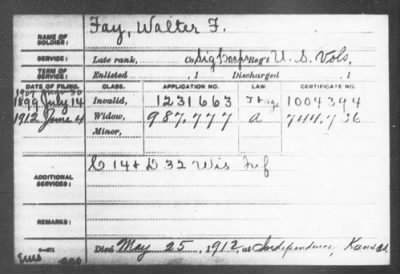 NAME OF SOLDIER: Fay, Walter F.
SERVICE: Late rank, Co. Sig Corps Reg't U. S. Vols.
TERM OF SERVICE: Enlisted , 1 Discharged , 1
DATE OF FILING. CLASS. APPLICATION NO. LAW. CERTIFICATE NO.
1907
1899 July 14 Invalid, 1231663 1004394
1912 June 4 Widow, 987,777 a 744,736
Minor,
ADDITIONAL SERVICES: C 14 + D 32 Wis Inf
REMARKS:
Died May 25, 1912, at Independence, Kansas